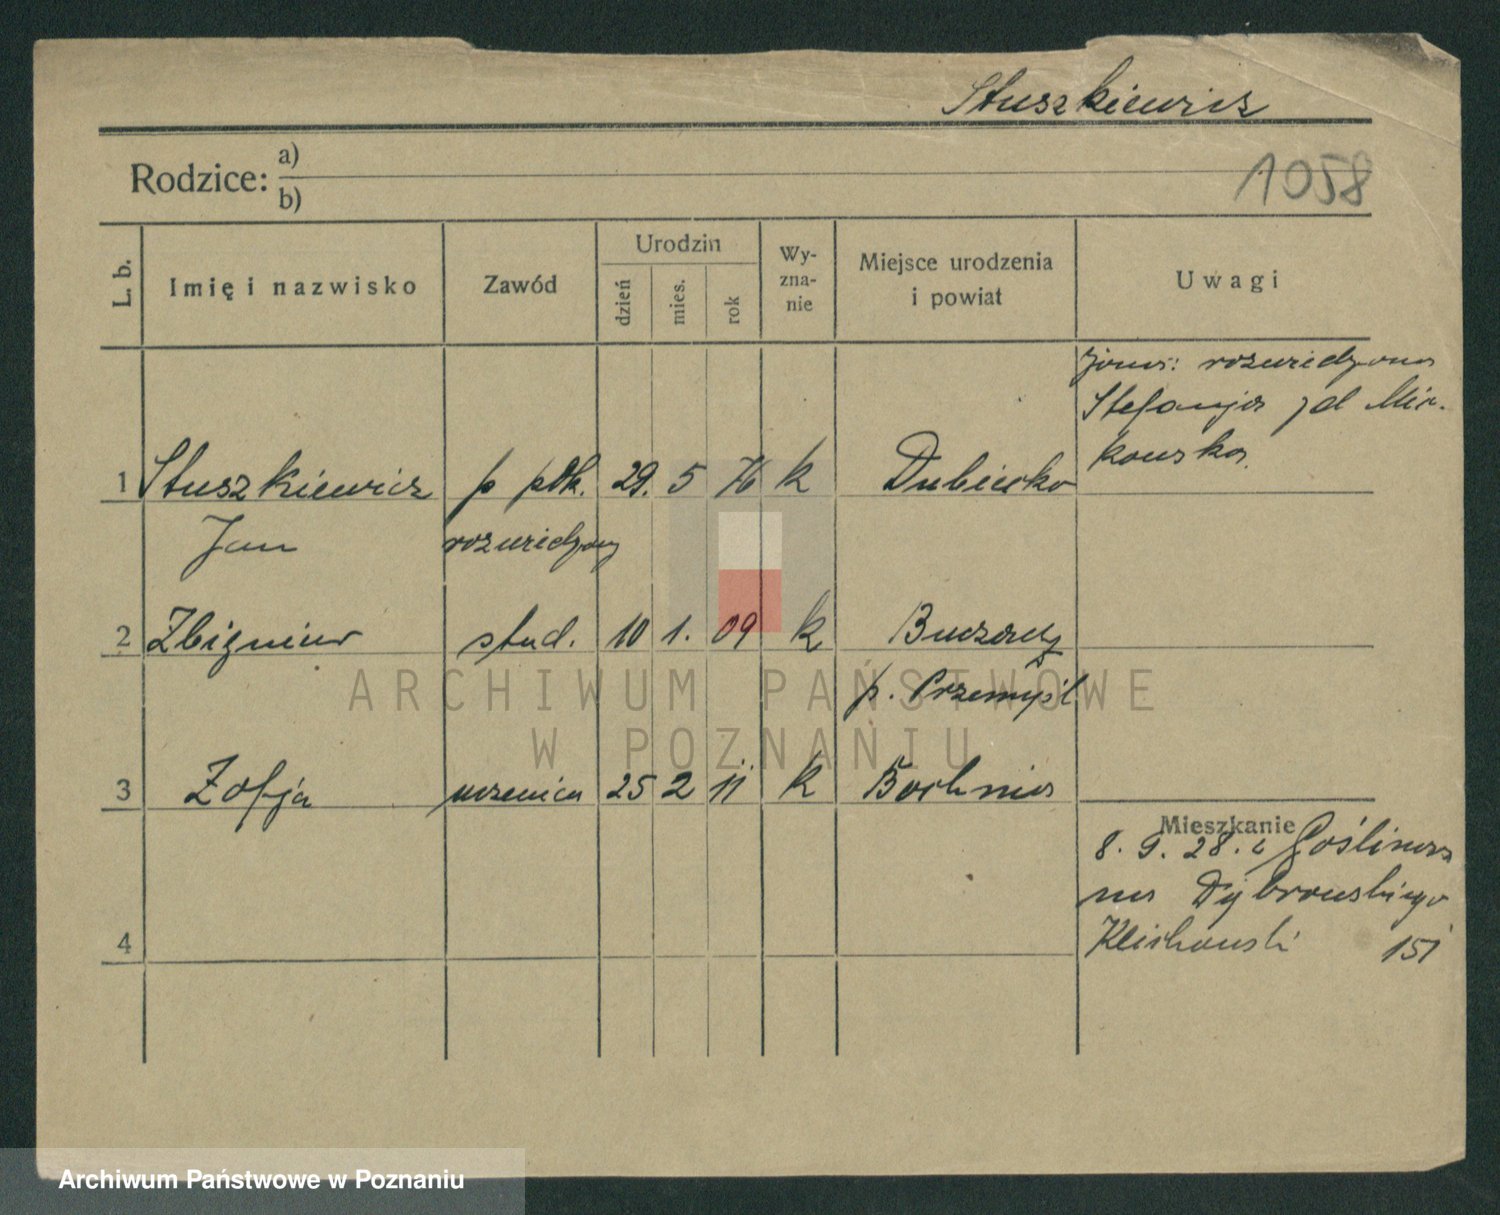 Stuszkiewicz
Rodzice: a)
b)
1058
L. b.
Imię i nazwisko
Zawód
Urodzin
dzień
mies.
rok
Wy-
zna-
nie
Miejsce urodzenia
i powiat
Uwagi
żona: rozwiedziona
Stefanja zd
kowska
1 Stuszkiewicz p płk. 29. 5 76 k Dubiecko
Jan rozwiedziony
2 Zbigniew stud. 10 1. 09 k
p. Przemyśl
3 Zofja uczenica 25 2 11 k Bochnia
Mieszkanie
8. 9. 28. z Goślina
na Dąbrowskiego
Klichowski 151
4
ARCHIWUM PAŃSTWOWE
W POZNANIU
Archiwum Państwowe w Poznaniu